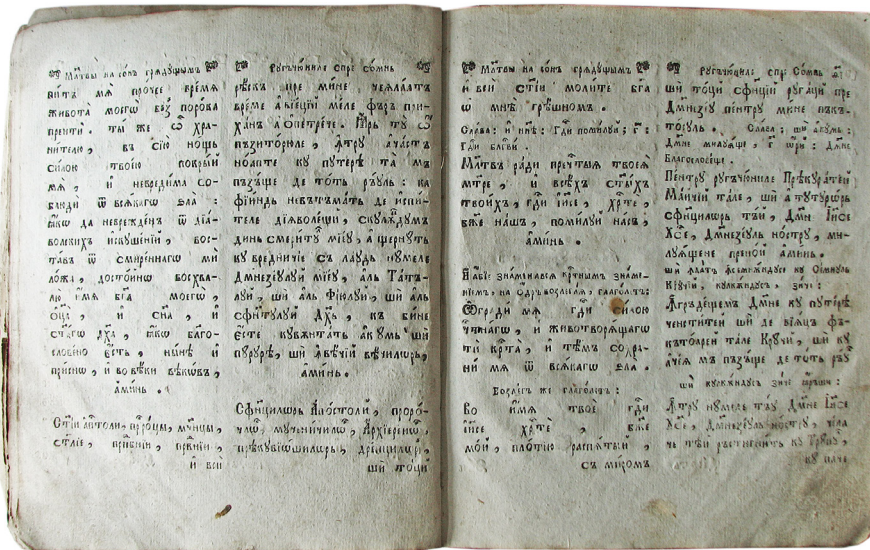 Мл҃твы на сонъ грядꙋщымъ
витъ мѧ прочее время
живота моегѡ без̾ порока
прейти. ты же ѡ҆ хра-
нителю, въ сїю нощь
силою твоею покрый
мѧ, и҆ невредима со-
блюди ѿ всѧкагѡ ѕла:
ꙗ҆кѡ да неврежденъ ѿ дїа-
волскихъ и҆скꙋшенїй, вос-
ставъ ѿ смиреннагѡ ми
ложа, достойнѡ восхва-
лю и҆мѧ бг҃а моегѡ,
ѻ҆ц҃а, и҆ сн҃а, и҆
ст҃агѡ дх҃а, ꙗ҆кѡ благо-
словено є҆сть, нынѣ и҆
приснѡ, и҆ во вѣки вѣкѡвъ,
а҆минь.
Ст҃їи а҆пⷭ҇толи, пррⷪ҇цы, мч҃нцы,
ст҃лїе, прпⷣбнїи, првⷣнїи,
и҆ вси
Рꙋгъчюниле спре сомнь
рѣскъ пре мине
време а҆ вїецїи меле фъръ при-
ханъ а҆ ѡ҆ петрече.
пъзиторюле, ꙟтрꙋ ачастъ
ноапте кꙋ пꙋтерѣ та мъ
пъзѣще де тотъ рѣꙋль: ка
фїиндь невътъматъ де испи-
теле дїѧволещи, скꙋлꙟдꙋмъ
динь смеритꙋ мїеꙋ, а҆щернꙋть
кꙋ вредничїе съ лаꙋдь нꙋмеле
Дмнезеꙋлꙋй мїеꙋ, аль Татъ-
лꙋй, ши аль Фїюлꙋй, ши аль
сфнтꙋлꙋй Дх҃ь, къ бине
єсте кꙋвꙟнтатъ акꙋмь ши
пꙋрꙋрѣ, ши ꙟ вѣчїй вѣчилѡрь,
а҆минь.
Сфнцилѡрь Апостоли, проро-
чилѡ, мꙋчьничилѡ, Архїерейлѡ,
прѣкꙋвїѡшилѡрь, дрепцилѡрь,
ши тоци
Мл҃твы на сонъ грядꙋщымъ
и҆ вси ст҃їи молите бг҃а
ѡ҆ мнѣ грѣшномъ.
Слава: и҆ нн҃ѣ: Гдⷭ҇и помилꙋй, г҃:
Гдⷭ҇и блгⷭ҇ви.
Мл҃твъ ради пречⷭ҇тыѧ твоеѧ
мт҃ре, и҆ всѣхъ ст҃ыхъ
твоихъ, гдⷭ҇и і҆и҃се, хрⷭ҇те,
бж҃е нашъ, помилꙋй насъ,
а҆минь.
И҆ абїе знаменавсѧ крⷭ҇тнымъ знаме-
нїемъ, на ѻ҆дръ возлегаѧ, глаголетъ:
Ѡ҆гради мѧ гдⷭ҇и силою
чⷭ҇тнагѡ, и҆ животворѧщагѡ
ти крⷭ҇та, и҆ тѣмъ сохра-
ни мѧ ѿ всѧкагѡ ѕла.
Возлегъ же глаголетъ:
Во и҆мѧ твое гдⷭ҇и
і҆и҃се хрⷭ҇те, бж҃е
мой, плотїю распѧтый,
съ миромъ
Рꙋгъчюниле спре сомнь
ши тоци сфнции рꙋгаци пре
Дмнезеꙋ пентрꙋ мине пъкъ-
тосꙋль. Слава: ши акꙋмь:
Дмне милꙋаще, г҃ ѡри: Дмне
Благословѣще.
Пентрꙋ рꙋгъчюниле Прѣкꙋратей
Маичїй тале, ши а тꙋтꙋрѡрь
сфнцилѡрь тъй, Дмне Іисе
Хсе, Дмнезеꙋль нострꙋ, ми-
лꙋѧще пре ной аминь.
Крꙋчїй, кꙋлкꙟдꙋсе, зиче:
Ꙟгръдеще мъ Дмне кꙋ пꙋтерѣ
чинститей ши де вїацъ фъ-
кътоарей тале Крꙋчи, ши кꙋ
ачѣѧ мъ пъзѣще де тоть рѣꙋ
ши кꙋлкꙟдꙋсе зиче
Ꙟтрꙋ нꙋмеле тъꙋ Дмне Іисе
Хсе, Дмнезеꙋль нострꙋ,
че тей растигнить кꙋ Трꙋпꙋ,
кꙋ паче